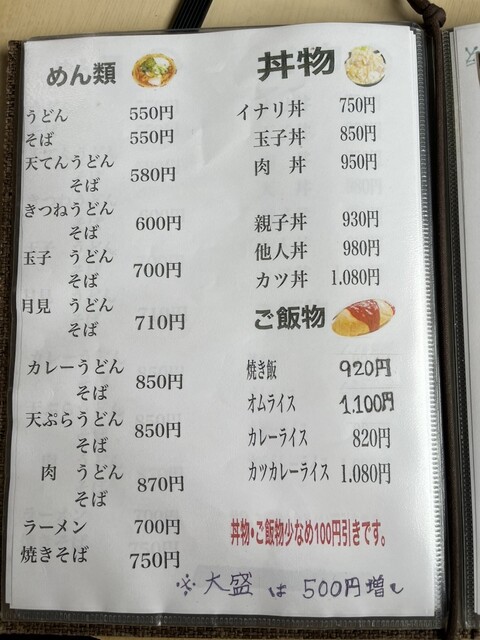 めん類
うどん 550円
そば 550円
天てんうどん
そば 580円
きつねうどん
そば 600円
玉子 うどん
そば 700円
月見 うどん
そば 710円
カレーうどん
そば 850円
天ぷらうどん
そば 850円
肉 うどん
そば 870円
ラーメン 700円
焼きそば 750円
丼物
イナリ丼 750円
玉子丼 850円
肉 丼 950円
親子丼 930円
他人丼 980円
カツ丼 1.080円
ご飯物
焼き飯 920円
オムライス 1.100円
カレーライス 820円
カツカレーライス 1.080円
丼物・ご飯物少なめ100円引きです。
※大盛は500円増し